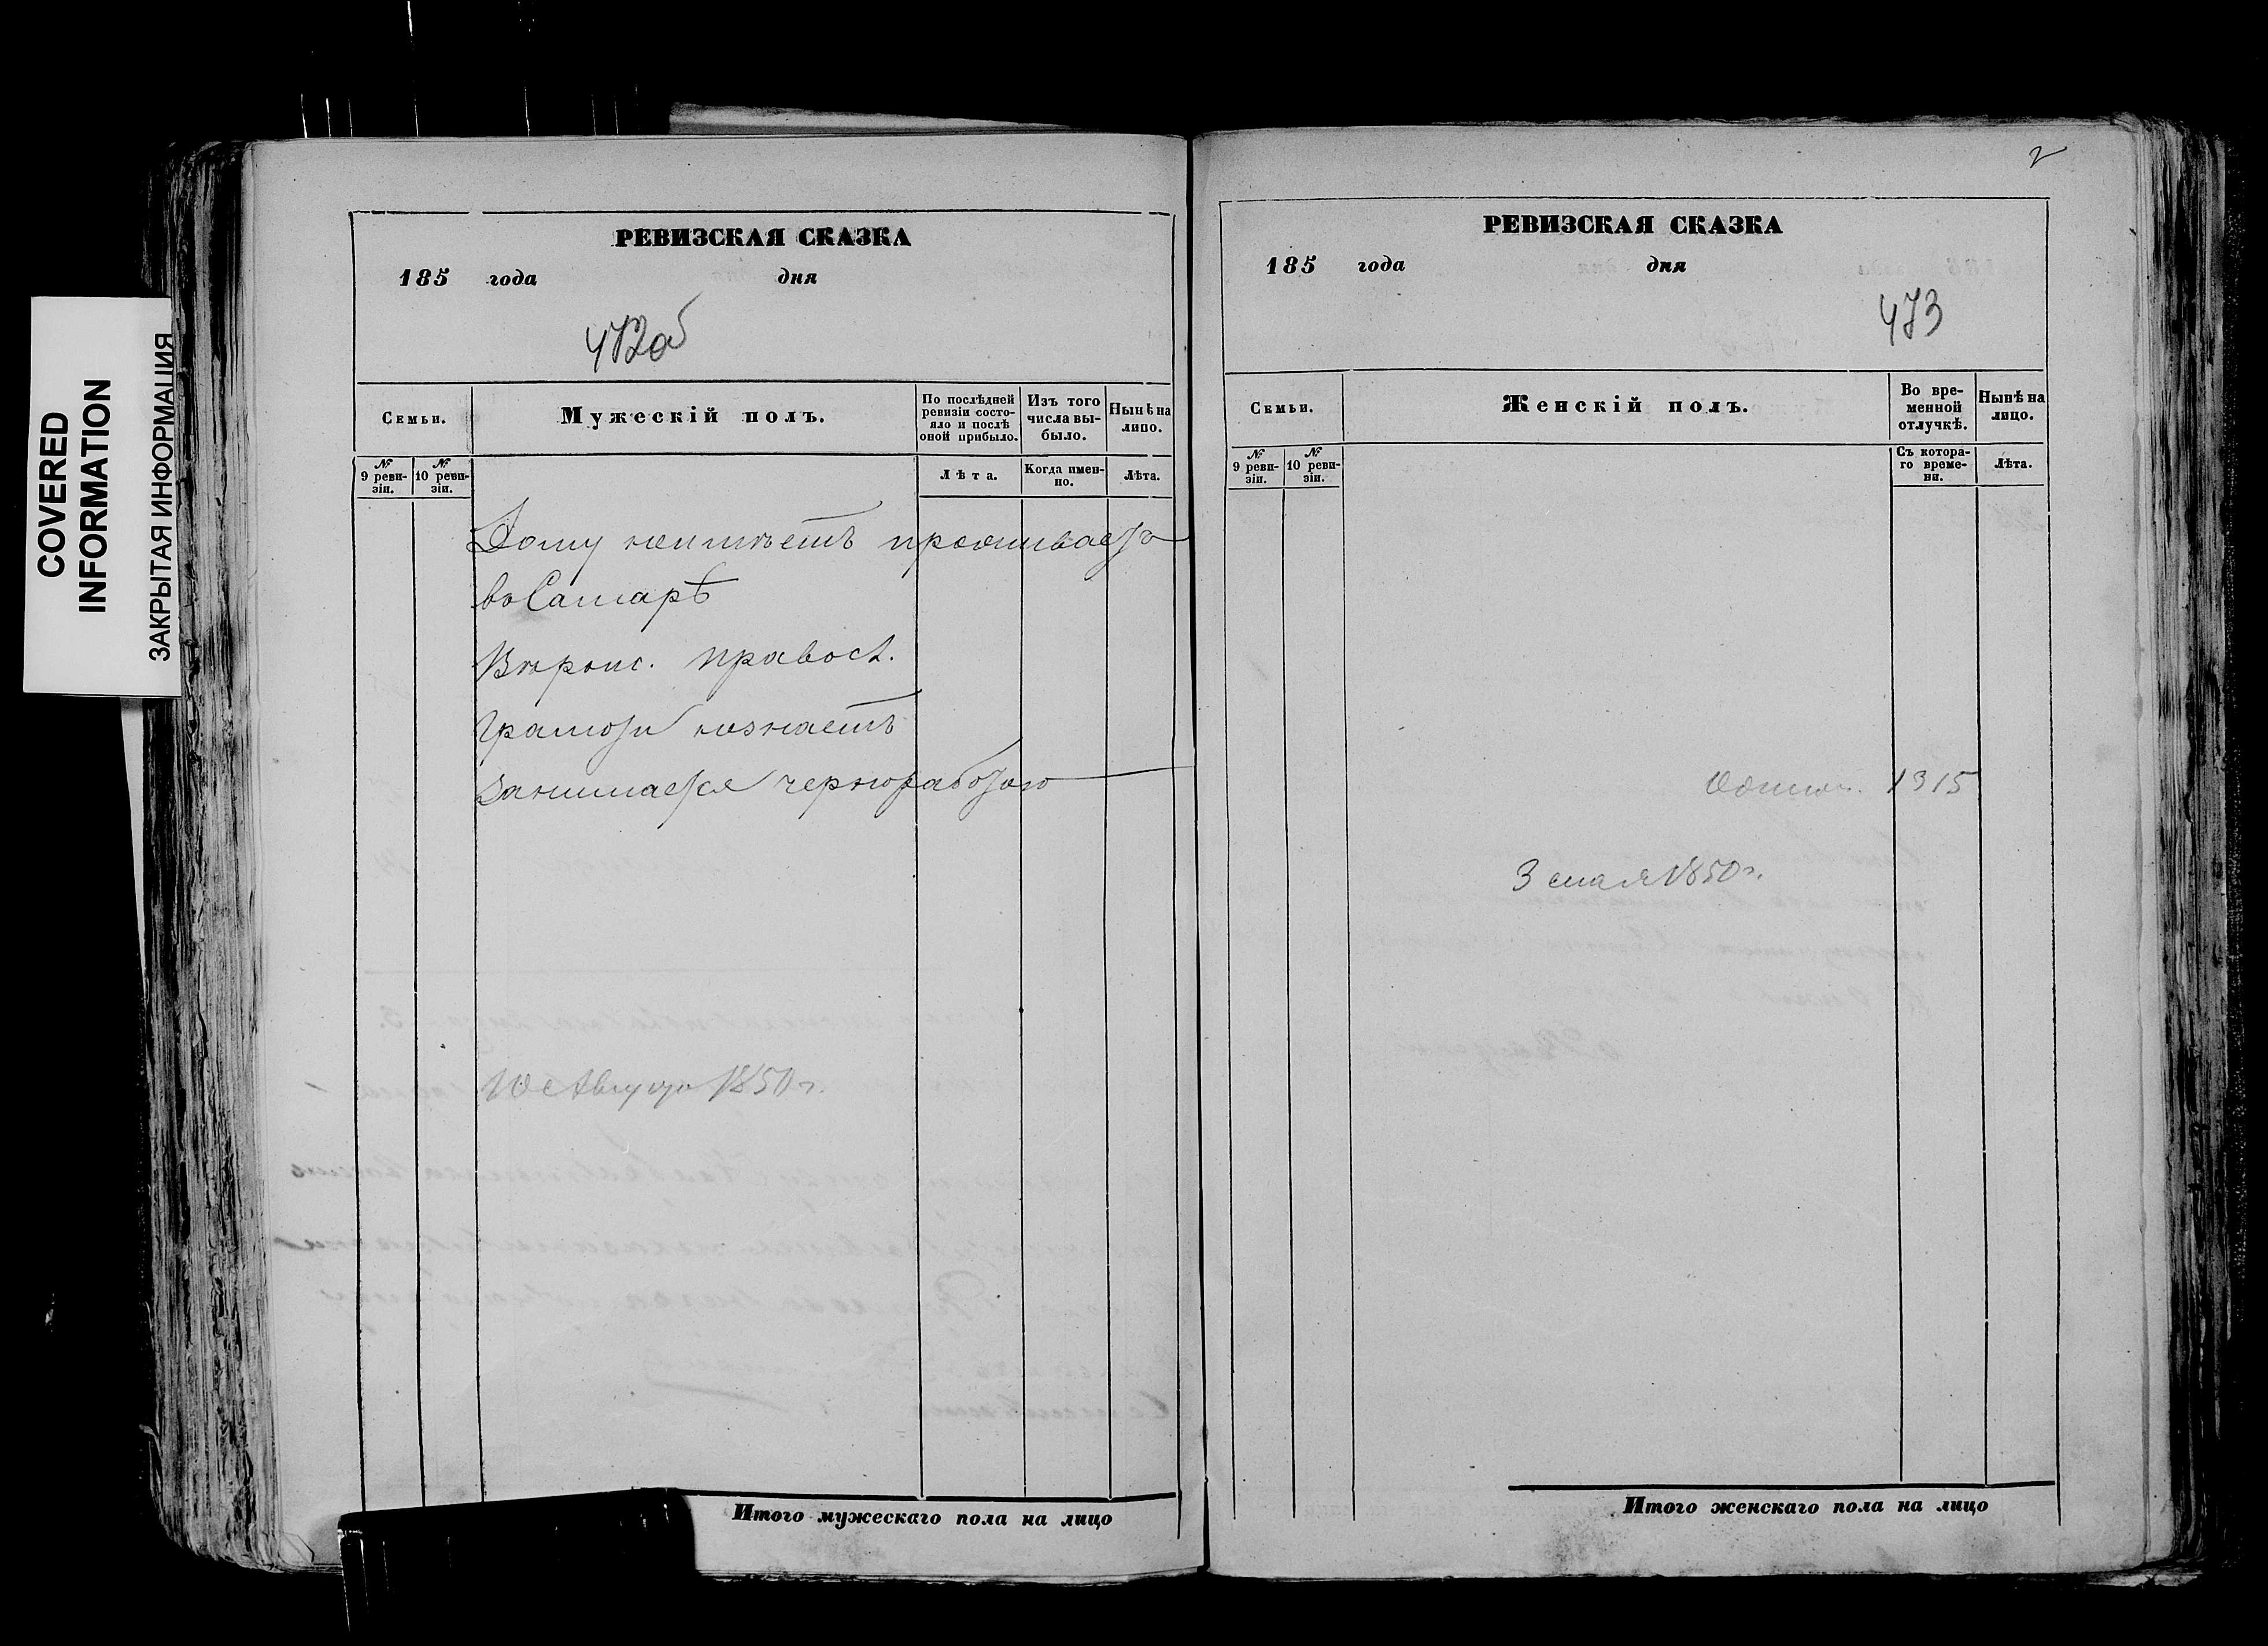 COVERED
INFORMATION
ЗАКРЫТАЯ ИНФОРМАЦИЯ
РЕВИЗСКАЯ СКАЗКА
185 года дня
472об
Семьи.
Мужескiй полъ.
По послѣдней ревизiи состо-
яло и послѣ
оной прибыло.
Изъ того
числа вы-
было.
Нынѣ на
лицо.
№
9 реви-
зiи.
№
10 реви-
зiи.
Лѣта.
Когда имен-
но.
Лѣта.
Дому неимѣетъ проживаетъ
въ Самарѣ
Вѣроис. правосл.
Грамоты незнаетъ
Занимается черноработою
10 Августа 1850 г.
Итого мужескаго пола на лицо
2
РЕВИЗСКАЯ СКАЗКА
185 года дня
473
Семьи.
Женскiй полъ.
Во вре-
менной
отлучкѣ.
Нынѣ на
лицо.
№
9 реви-
зiи.
№
10 реви-
зiи.
Съ котора-
го време-
ни.
Лѣта.
1315
3 мая 1850 г.
Итого женскаго пола на лицо